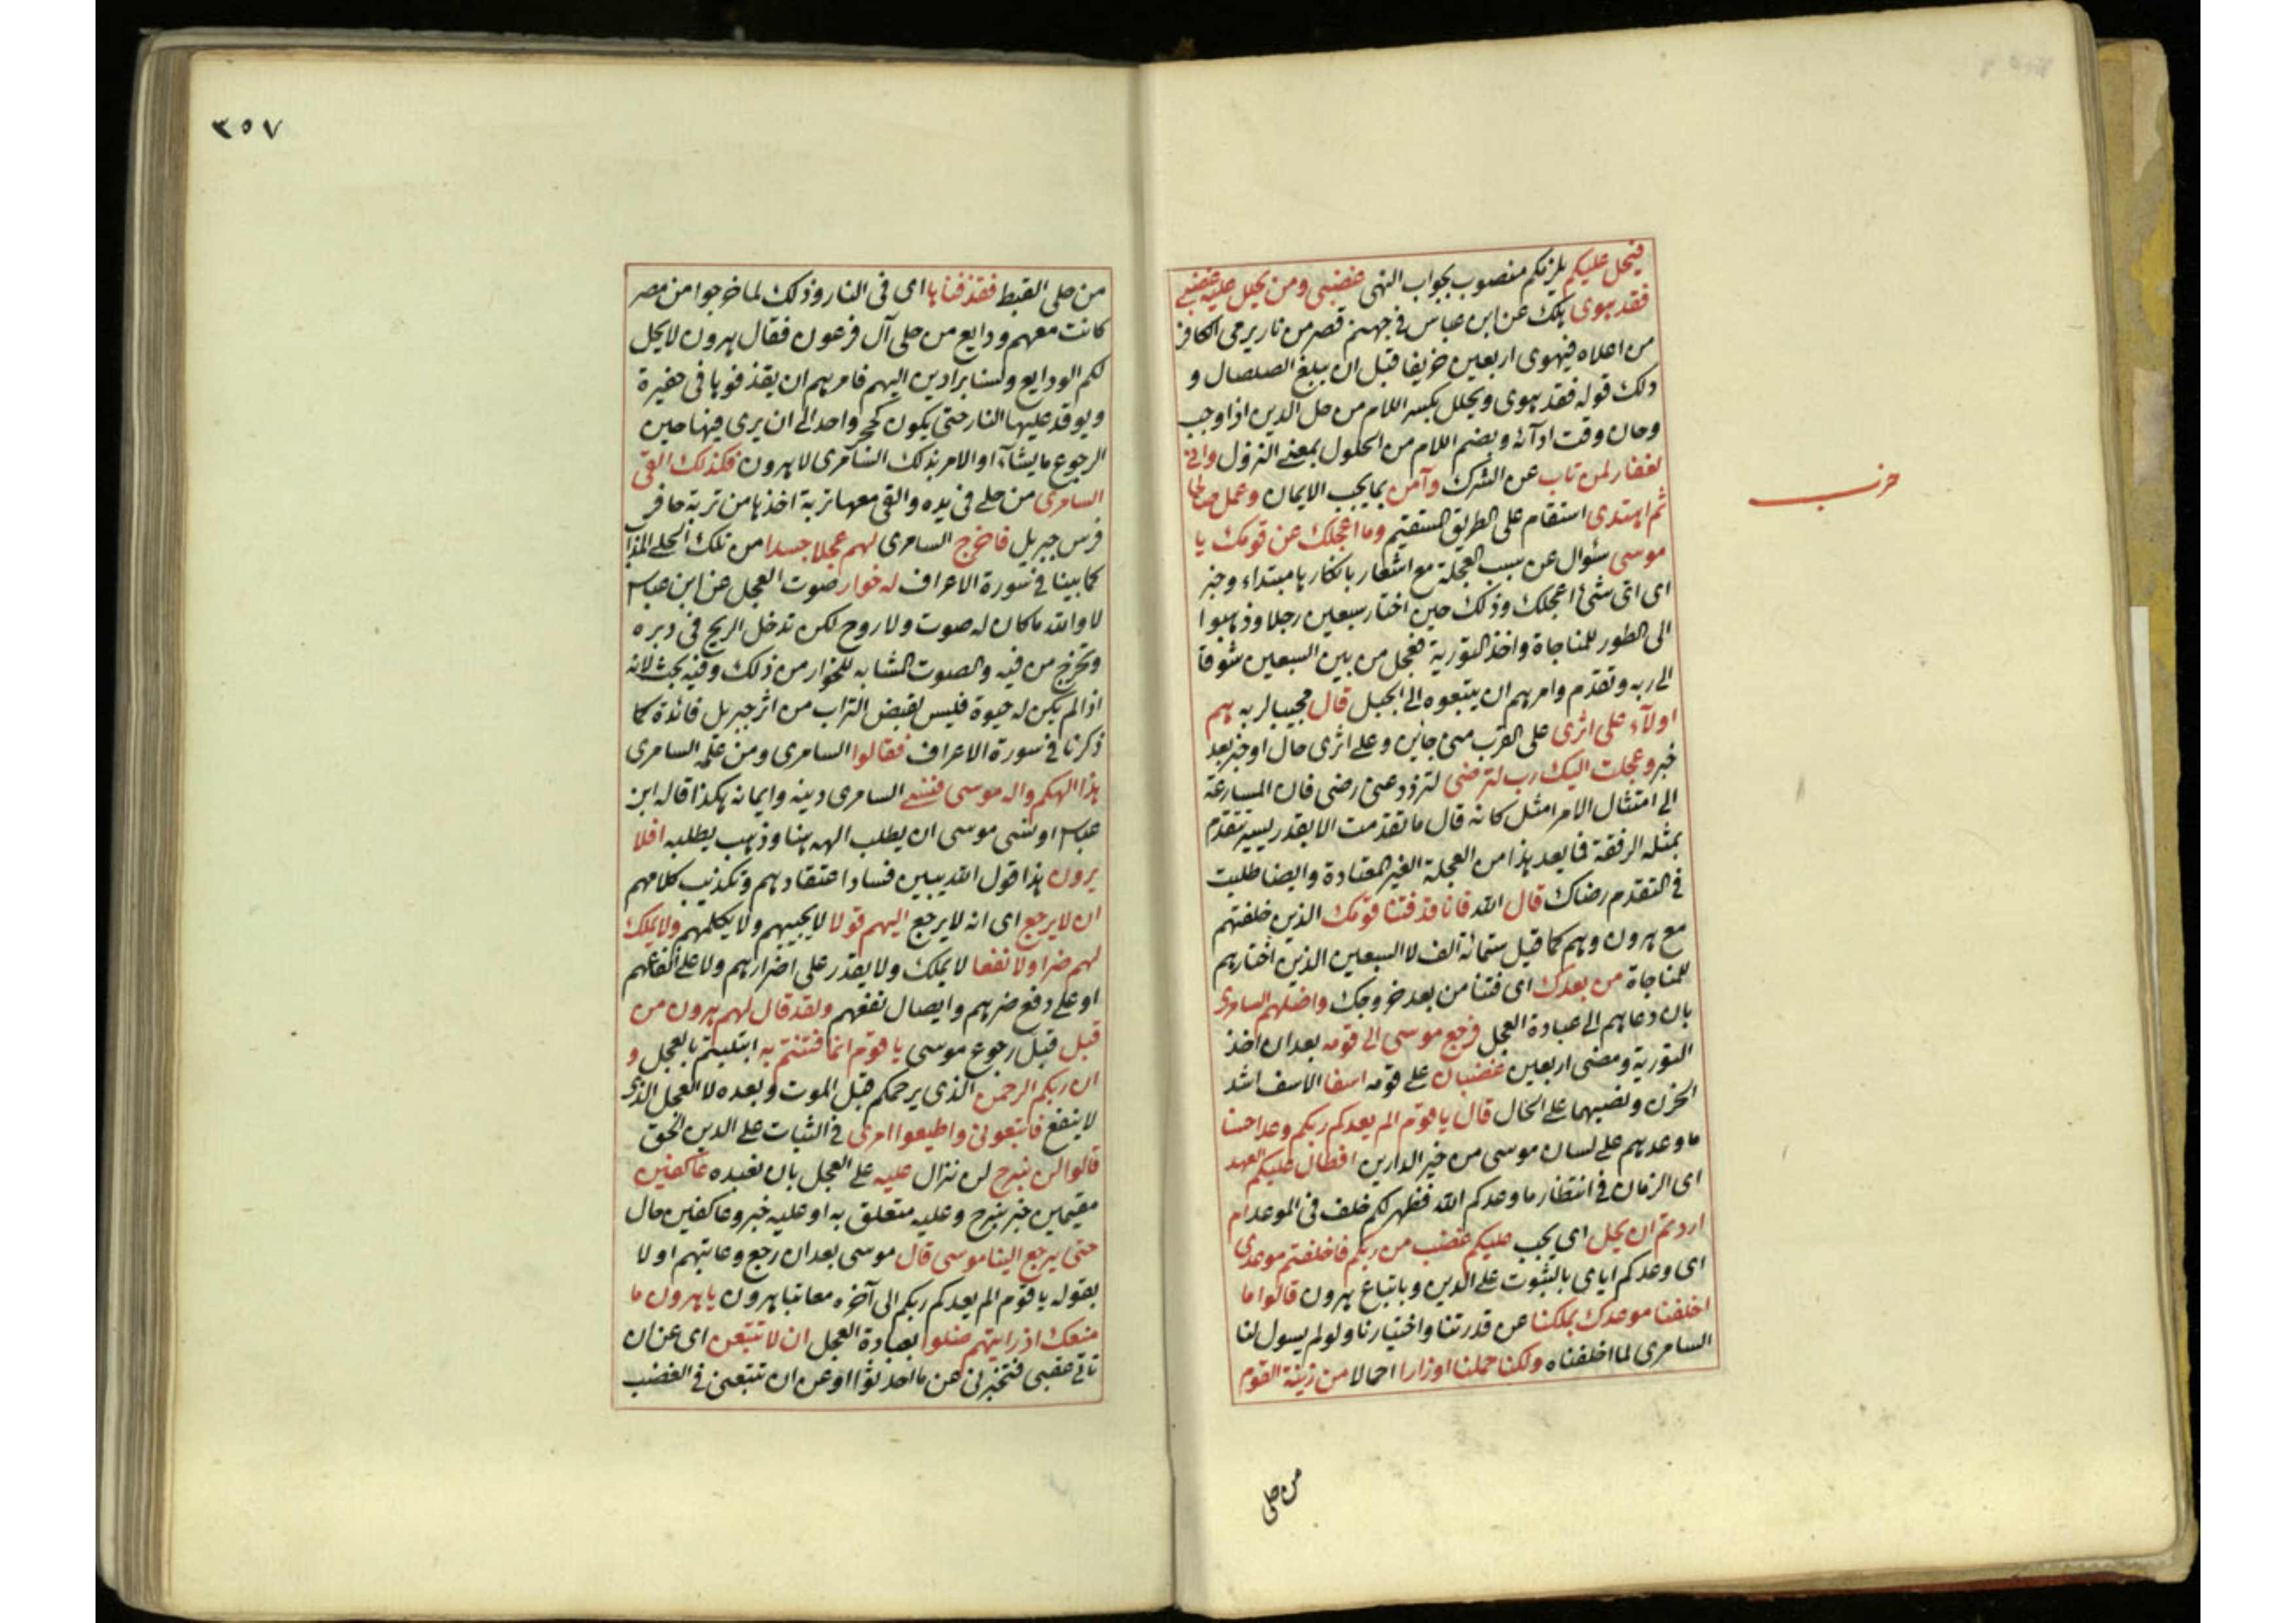 فيحل عليكم يلزمكم منصوب بجواب النهى غضبى ومن يحلل عليه غضبى
فقد هوى هلك عن ابن عباس فى جهنم قصر من نار يرمى الكافر
من اعلاه فيهوى اربعين خريفا قبل ان يبلغ الصلصال و
ذلك قوله فقد هوى ويحلل بكسر اللام من حل الدين اذا وجب
وحان وقت ادآئه وبضم اللام من الحلول بمعنى النزول وانى
لغفار لمن تاب عن الشرك وآمن بما يجب الايمان وعمل صالحا
ثم اهتدى استقام على الطريق المستقيم وما اعجلك عن قومك يا
موسى سئوال عن سبب العجلة مع اشعار بانكارها مبتداء وخبر
اى اى شئ اعجلك وذلك حين اختار سبعين رجلا وذهبوا
الى الطور للمناجاة واخذ التورية فعجل من بين السبعين شوقا
الى ربه وتقدم وامرهم ان يتبعوه الى الجبل قال مجيبا لربه هم
اولآء على اثرى على القرب منى جائين وعلى اثرى حال او خبر بعد
خبر وعجلت اليك رب لترضى لتزدد عنى رضى فان المسارعة
الى امتثال الامر امثل كانه قال ما تقدمت الا بقدر يسير تتقدم
بمثله الرفقة فما يعد هذا من العجلة الغير المعتادة وايضا طلبت
فى التقدم رضاك قال الله فانا قد فتنا قومك الذين خلفتهم
مع هرون وهم كما قيل ستمائة الف لا السبعين الذين اختارهم
للمناجاة من بعدك اى فتنا من بعد خروجك واضلهم السامرى
بان دعاهم الى عبادة العجل فرجع موسى الى قومه بعد ان اخذ
التورية ومضى اربعين غضبان على قومه اسفا الاسف اشد
الحزن ونصبهما على الحال قال يا قوم الم يعدكم ربكم وعدا حسنا
ما وعدهم على لسان موسى من خير الدارين افطال عليكم العهد
اى الزمان فى انتظار ما وعدكم الله فظهر لكم خلف فى الموعد ام
اردتم ان يحل اى يجب عليكم غضب من ربكم فاخلفتم موعدى
اى وعدكم اياى بالثبوت على الدين وباتباع هرون قالوا ما
اخلفنا موعدك بملكنا عن قدرتنا واختيارنا ولو لم يسول لنا
السامرى لما اخلفناه ولكنا حملنا اوزارا احمالا من زينة القوم
من حلى
حزب
٣٥٧
من حلى القبط فقذفناها اى فى النار وذلك لما خرجوا من مصر
كانت معهم ودايع من حلى آل فرعون فقال هرون لا يحل
لكم الودايع ولسنا برادين اليهم فامرهم ان يقذفوها فى حفيرة
ويوقد عليها النار حتى يكون كحجر واحد الى ان يرى فيها حين
الرجوع ما يشآء او الامر بذلك السامرى لا هرون فكذلك القى
السامرى من حلى فى يده والقى معها تربة اخذها من تربة حافر
فرس جبريل فاخرج السامرى لهم عجلا جسدا من تلك الحلى المذاب
كما بينا فى سورة الاعراف له خوار صوت العجل عن ابن عباس
لا والله ما كان له صوت ولا روح لكن تدخل الريح فى دبره
وتخرج من فيه والصوت المشابه للخوار من ذلك وفيه بحث لانه
اذا لم يكن له حيوة فليس لقبض التراب من اثر جبريل فائدة كما
ذكرنا فى سورة الاعراف فقالوا السامرى ومن علمه السامرى
هذا الهكم واله موسى فنسى السامرى دينه وايمانه هكذا قاله ابن
عباس او نسى موسى ان يطلب الهه هنا وذهب يطلبه افلا
يرون هذا قول الله يبين فساد اعتقادهم وتكذيب كلامهم
ان لا يرجع اى انه لا يرجع اليهم قولا لا يجيبهم ولا يكلمهم ولا يملك
لهم ضرا ولا نفعا لا يملك ولا يقدر على اضرارهم ولا على انفاعهم
او على دفع ضرهم وايصال نفعهم ولقد قال لهم هرون من
قبل قبل رجوع موسى يا قوم انما فتنتم به ابتليتم بالعجل و
ان ربكم الرحمن الذى يرحمكم قبل الموت وبعده لا العجل الذى
لا ينفع فاتبعونى واطيعوا امرى فى الثبات على الدين الحق
قالوا لن نبرح لن نزال عليه على العجل بان نعبده عاكفين
مقيمين خبر نبرح وعليه متعلق به او عليه خبر وعاكفين حال
حتى يرجع الينا موسى قال موسى بعد ان رجع وعاتبهم اولا
بقوله يا قوم الم يعدكم ربكم الى آخره معاتبا هرون يا هرون ما
منعك اذ رايتهم ضلوا بعبادة العجل ان لا تتبعن اى عن ان
تاتى عقبى فتخبرنى عن ما احدثوا او عن ان تتبعنى فى الغضب